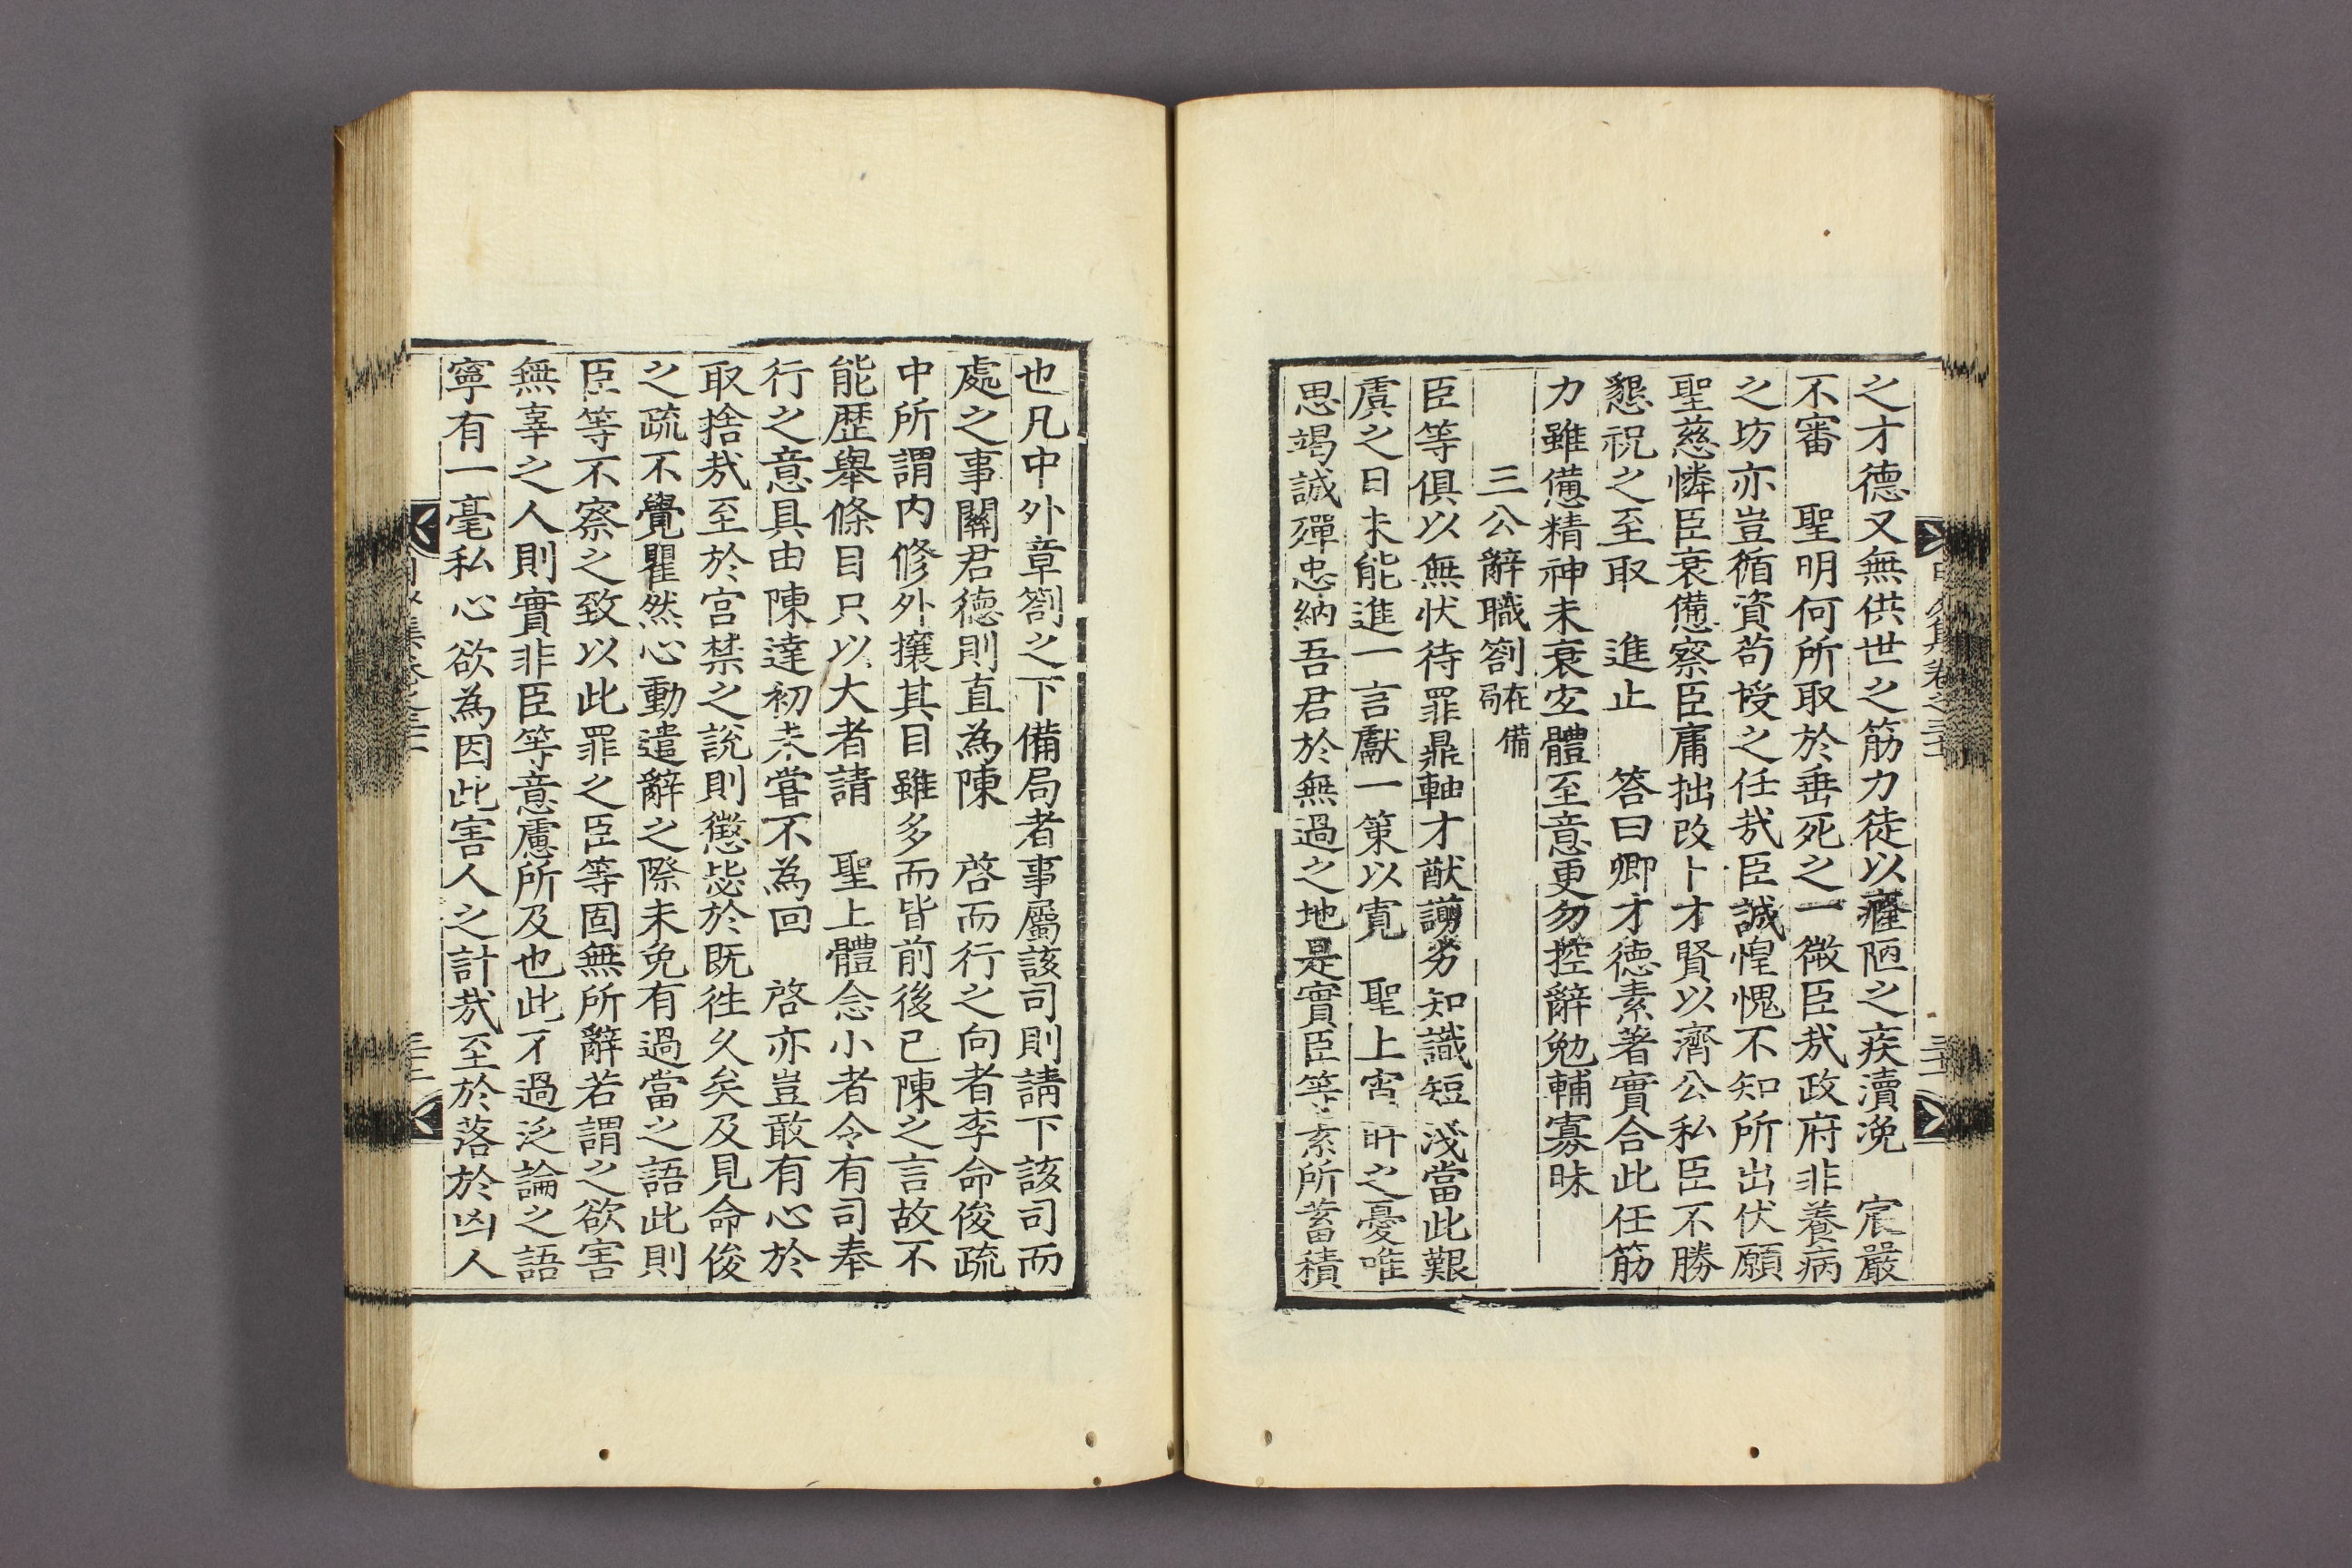 之才德又無供世之筋力徒以癃陋之疾瀆浼　宸嚴
不審　聖明何所取於垂死之一微臣哉政府非養病
之坊亦豈循資苟授之任哉臣誠惶愧不知所出伏願
聖慈憐臣衰憊察臣庸拙改卜才賢以濟公私臣不勝
懇祝之至取　進止　答曰卿才德素著實合此任筋
力雖憊精神未衰宜體至意更勿控辭勉輔寡昧
三公辭職劄在備局
臣等俱以無状待罪鼎軸才猷謭劣知識短淺當此艱
虞之日未能進一言獻一策以寬　聖上宵旰之憂唯
思竭誠殫忠納吾君於無過之地是實臣等素所蓄積
也凡中外章劄之下備局者事屬該司則請下該司而
處之事關君德則直為陳　啓而行之向者李命俊疏
中所謂内修外攘其目雖多而皆前後已陳之言故不
能歷舉條目只以大者請　聖上體念小者令有司奉
行之意具由陳達初未嘗不為回　啓亦豈敢有心於
取捨哉至於宮禁之說則懲毖於既徃久矣及見命俊
之疏不覺瞿然心動遣辭之際未免有過當之語此則
臣等不察之致以此罪之臣等固無所辭若謂之欲害
無辜之人則實非臣等意慮所及也此不過泛論之語
寧有一毫私心欲為因此害人之計哉至於落於凶人